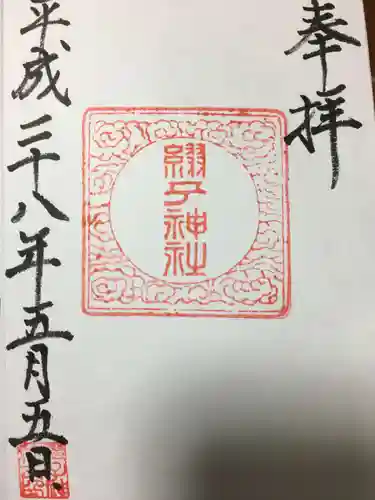 奉拝
綴子神社
平成二十八年五月五日